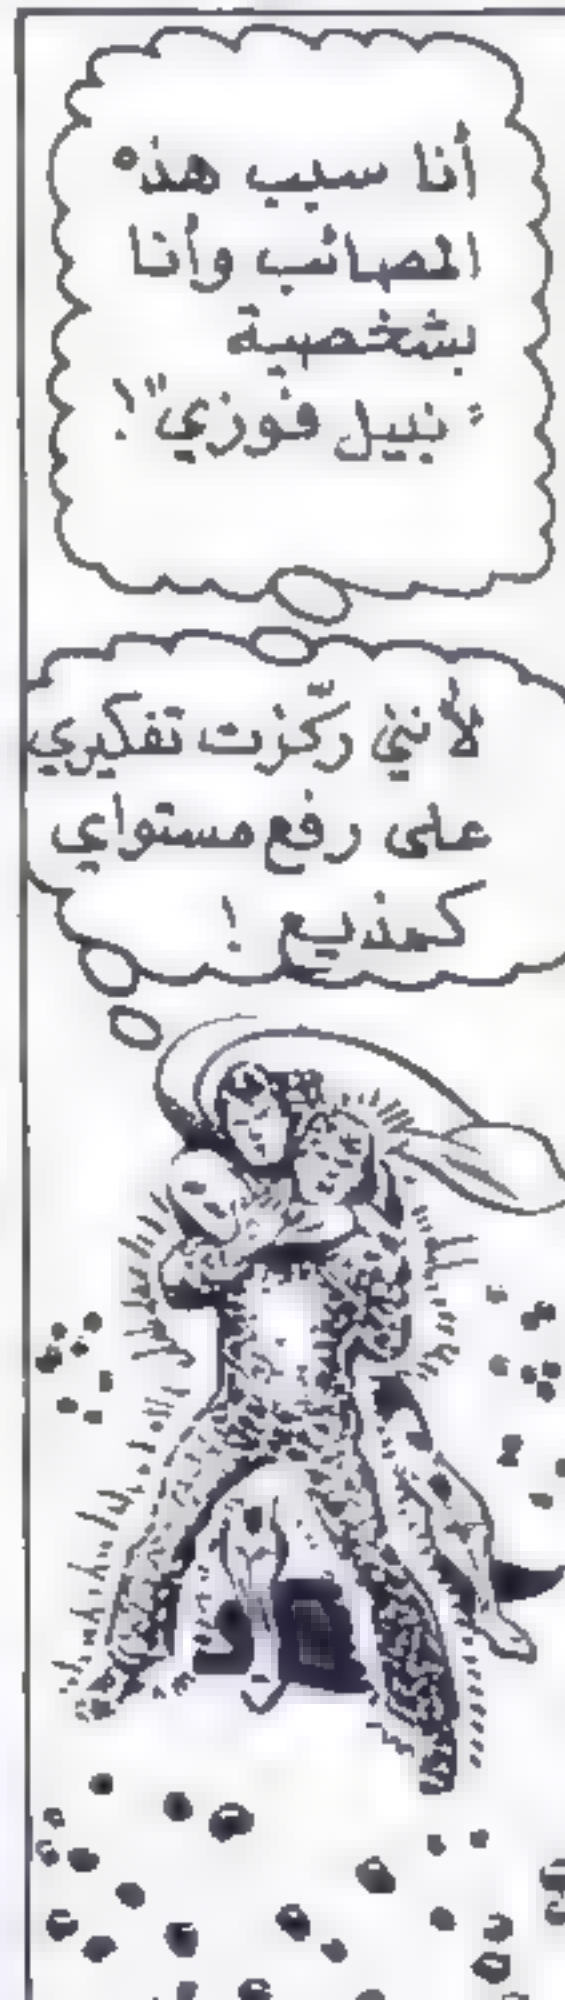 أنا سبب هذه
المصائب وأنا
بشخصية
"نبيل فوزي"!
لأنني ركّزت تفكيري
على رفع مستواي
كمذيع !